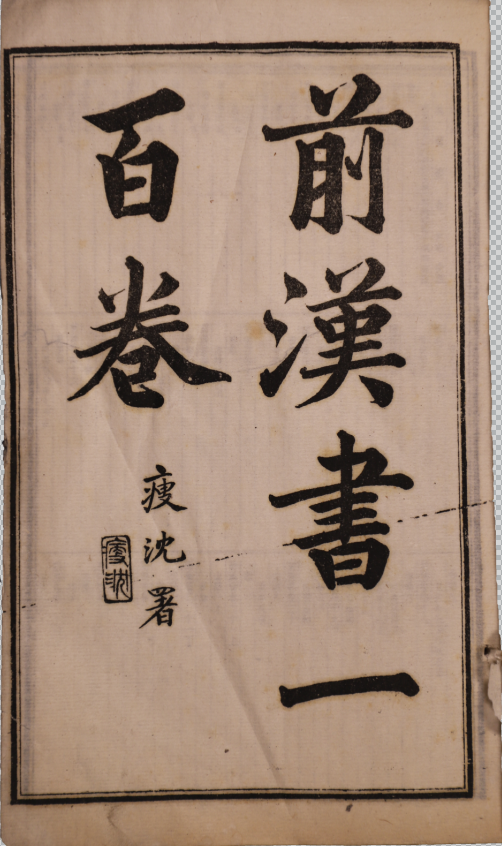 前漢書一
百卷
瘦沈署
瘦沈